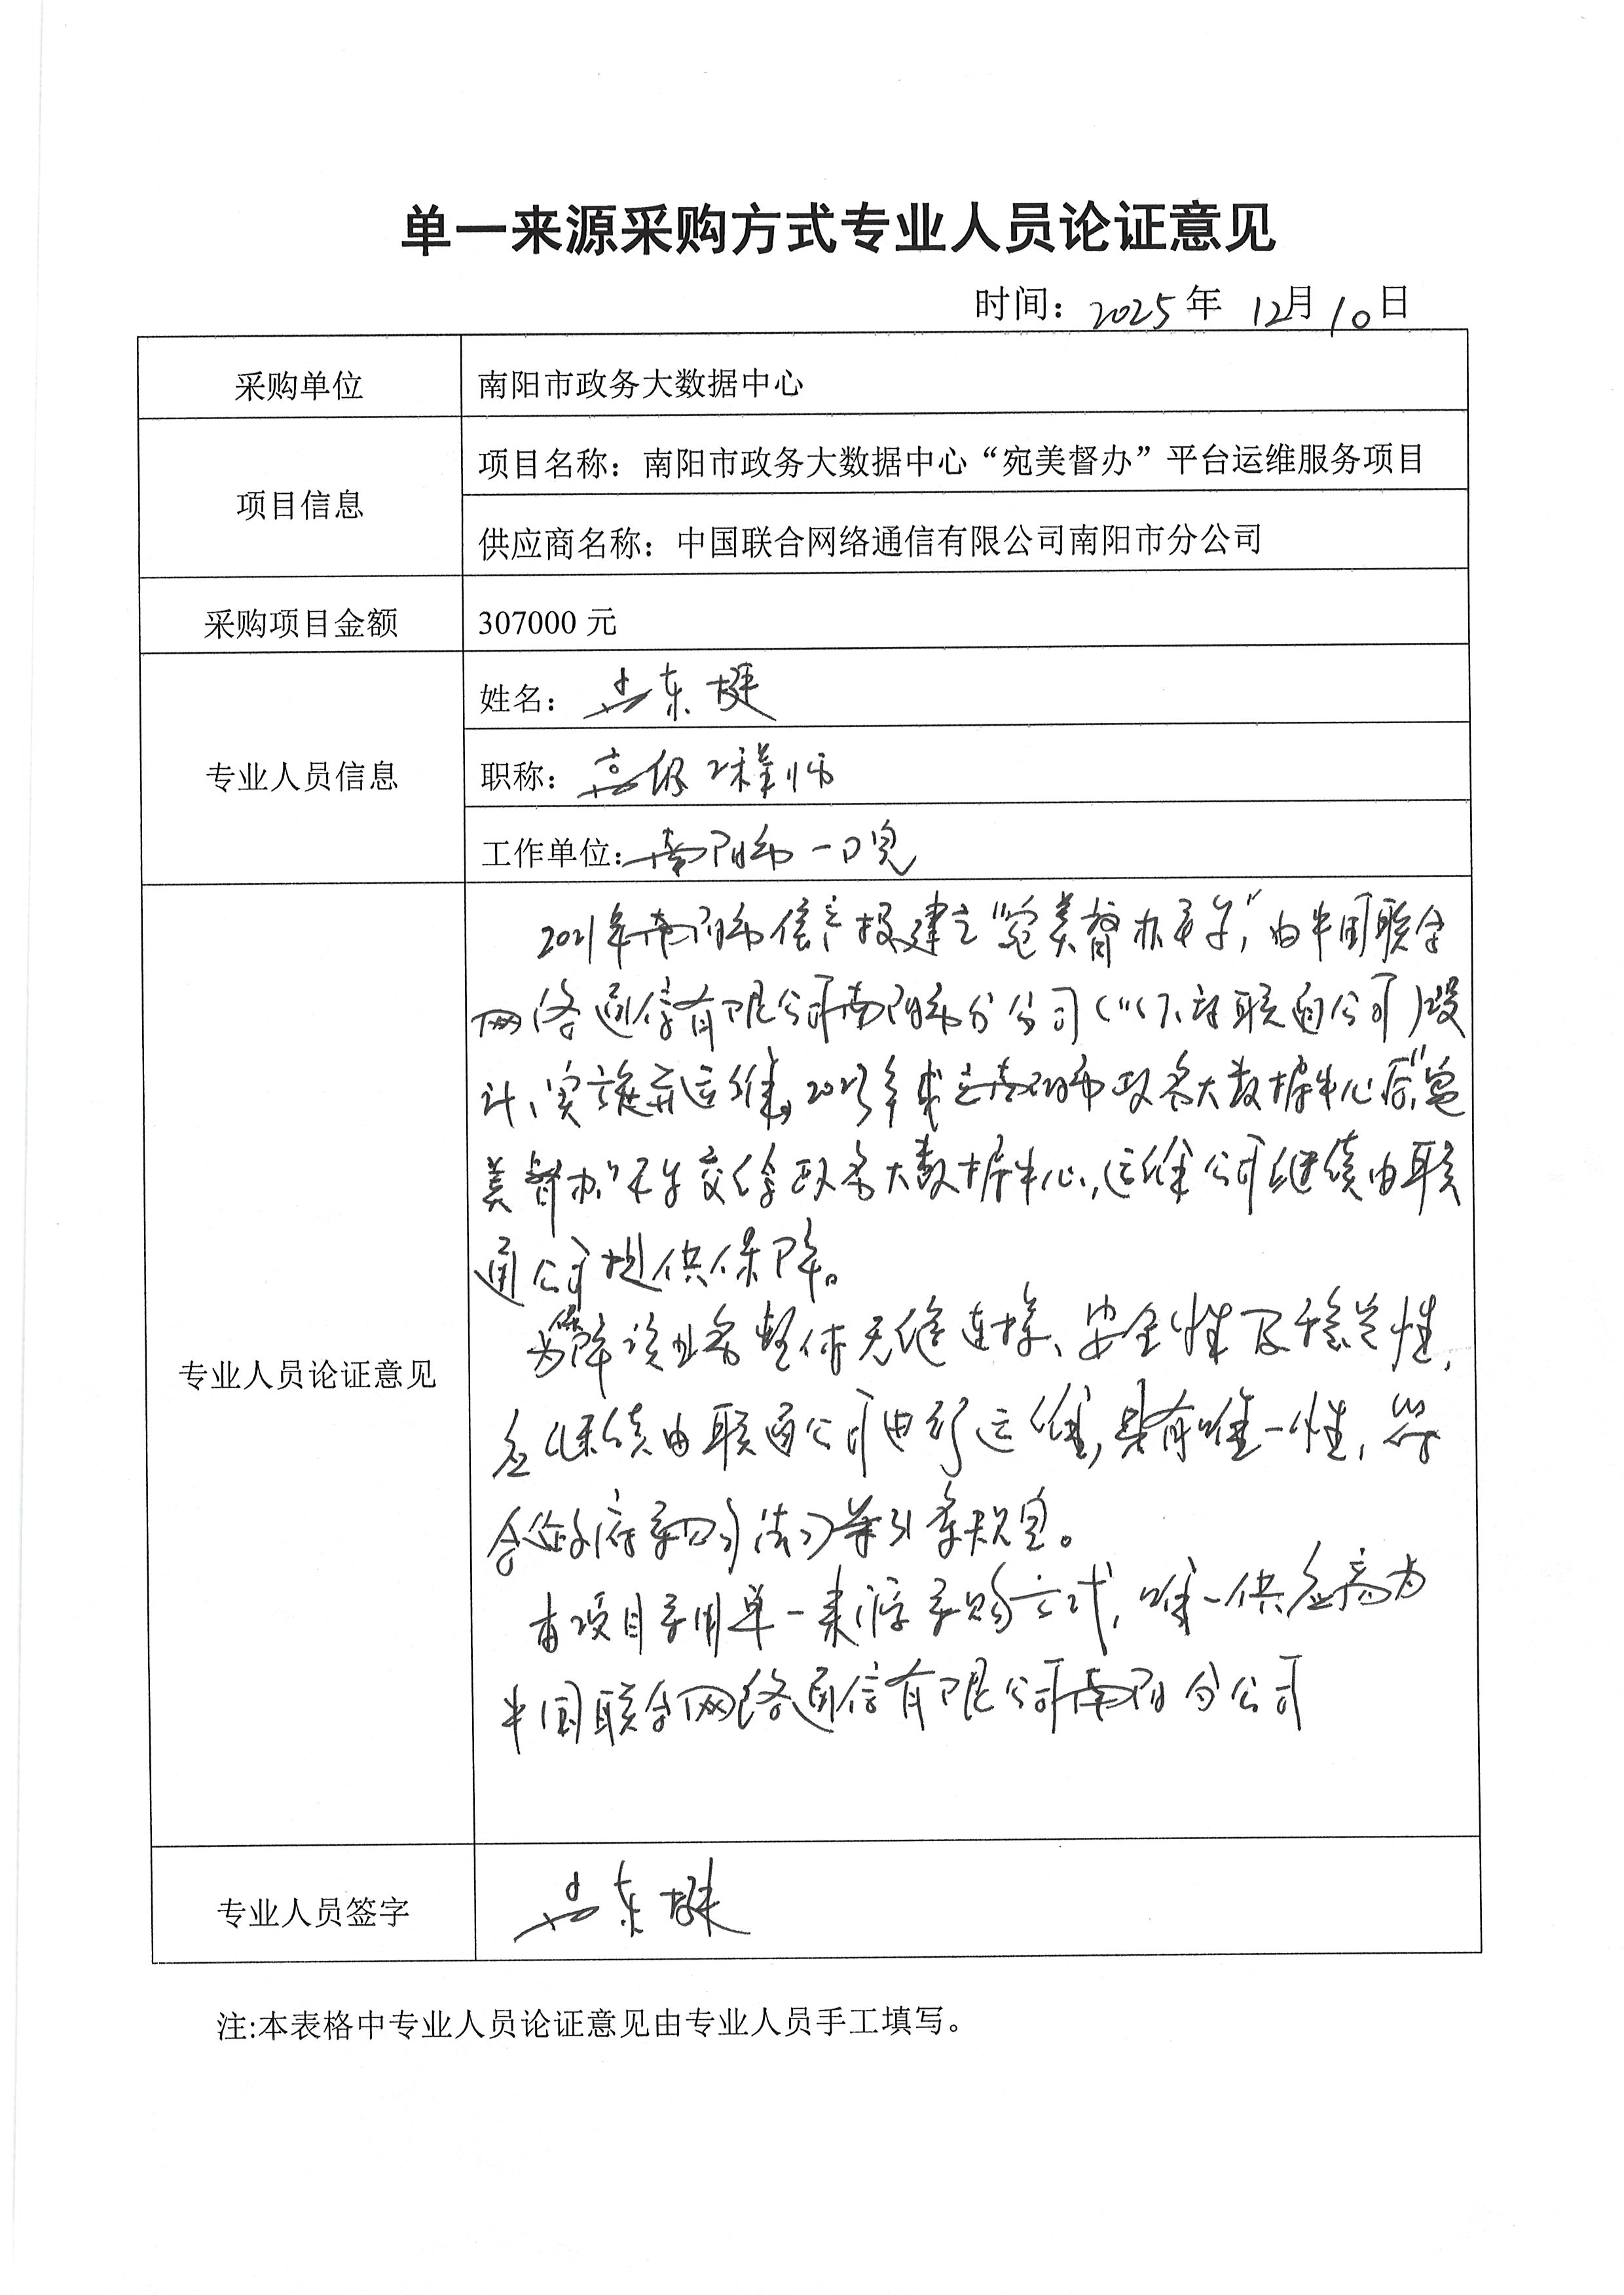 单一来源采购方式专业人员论证意见
时间：2025年 12月10日
采购单位
南阳市政务大数据中心
项目信息
项目名称：南阳市政务大数据中心“宛美督办”平台运维服务项目
供应商名称：中国联合网络通信有限公司南阳市分公司
采购项目金额
307000 元
专业人员信息
姓名：
职称：高级工程师
工作单位：南阳市一口完
专业人员论证意见
2021年南阳市信产投建立“宛美督办平台”，由中国联合
网络通信有限公司南阳市分公司（以下称联通公司）设
计、实施并运维。2023年成立南阳市政务大数据中心后，“宛
美督办”平台交给政务大数据中心，运维公司继续由联
通公司提供保障。
为保障该业务整体无缝连接、安全性及稳定性，
应继续由联通公司进行运维，具有唯一性，符
合政府采购法第31条规定。
本项目采用单一来源采购方式，唯一供应商为
中国联合网络通信有限公司南阳分公司
专业人员签字
注:本表格中专业人员论证意见由专业人员手工填写。